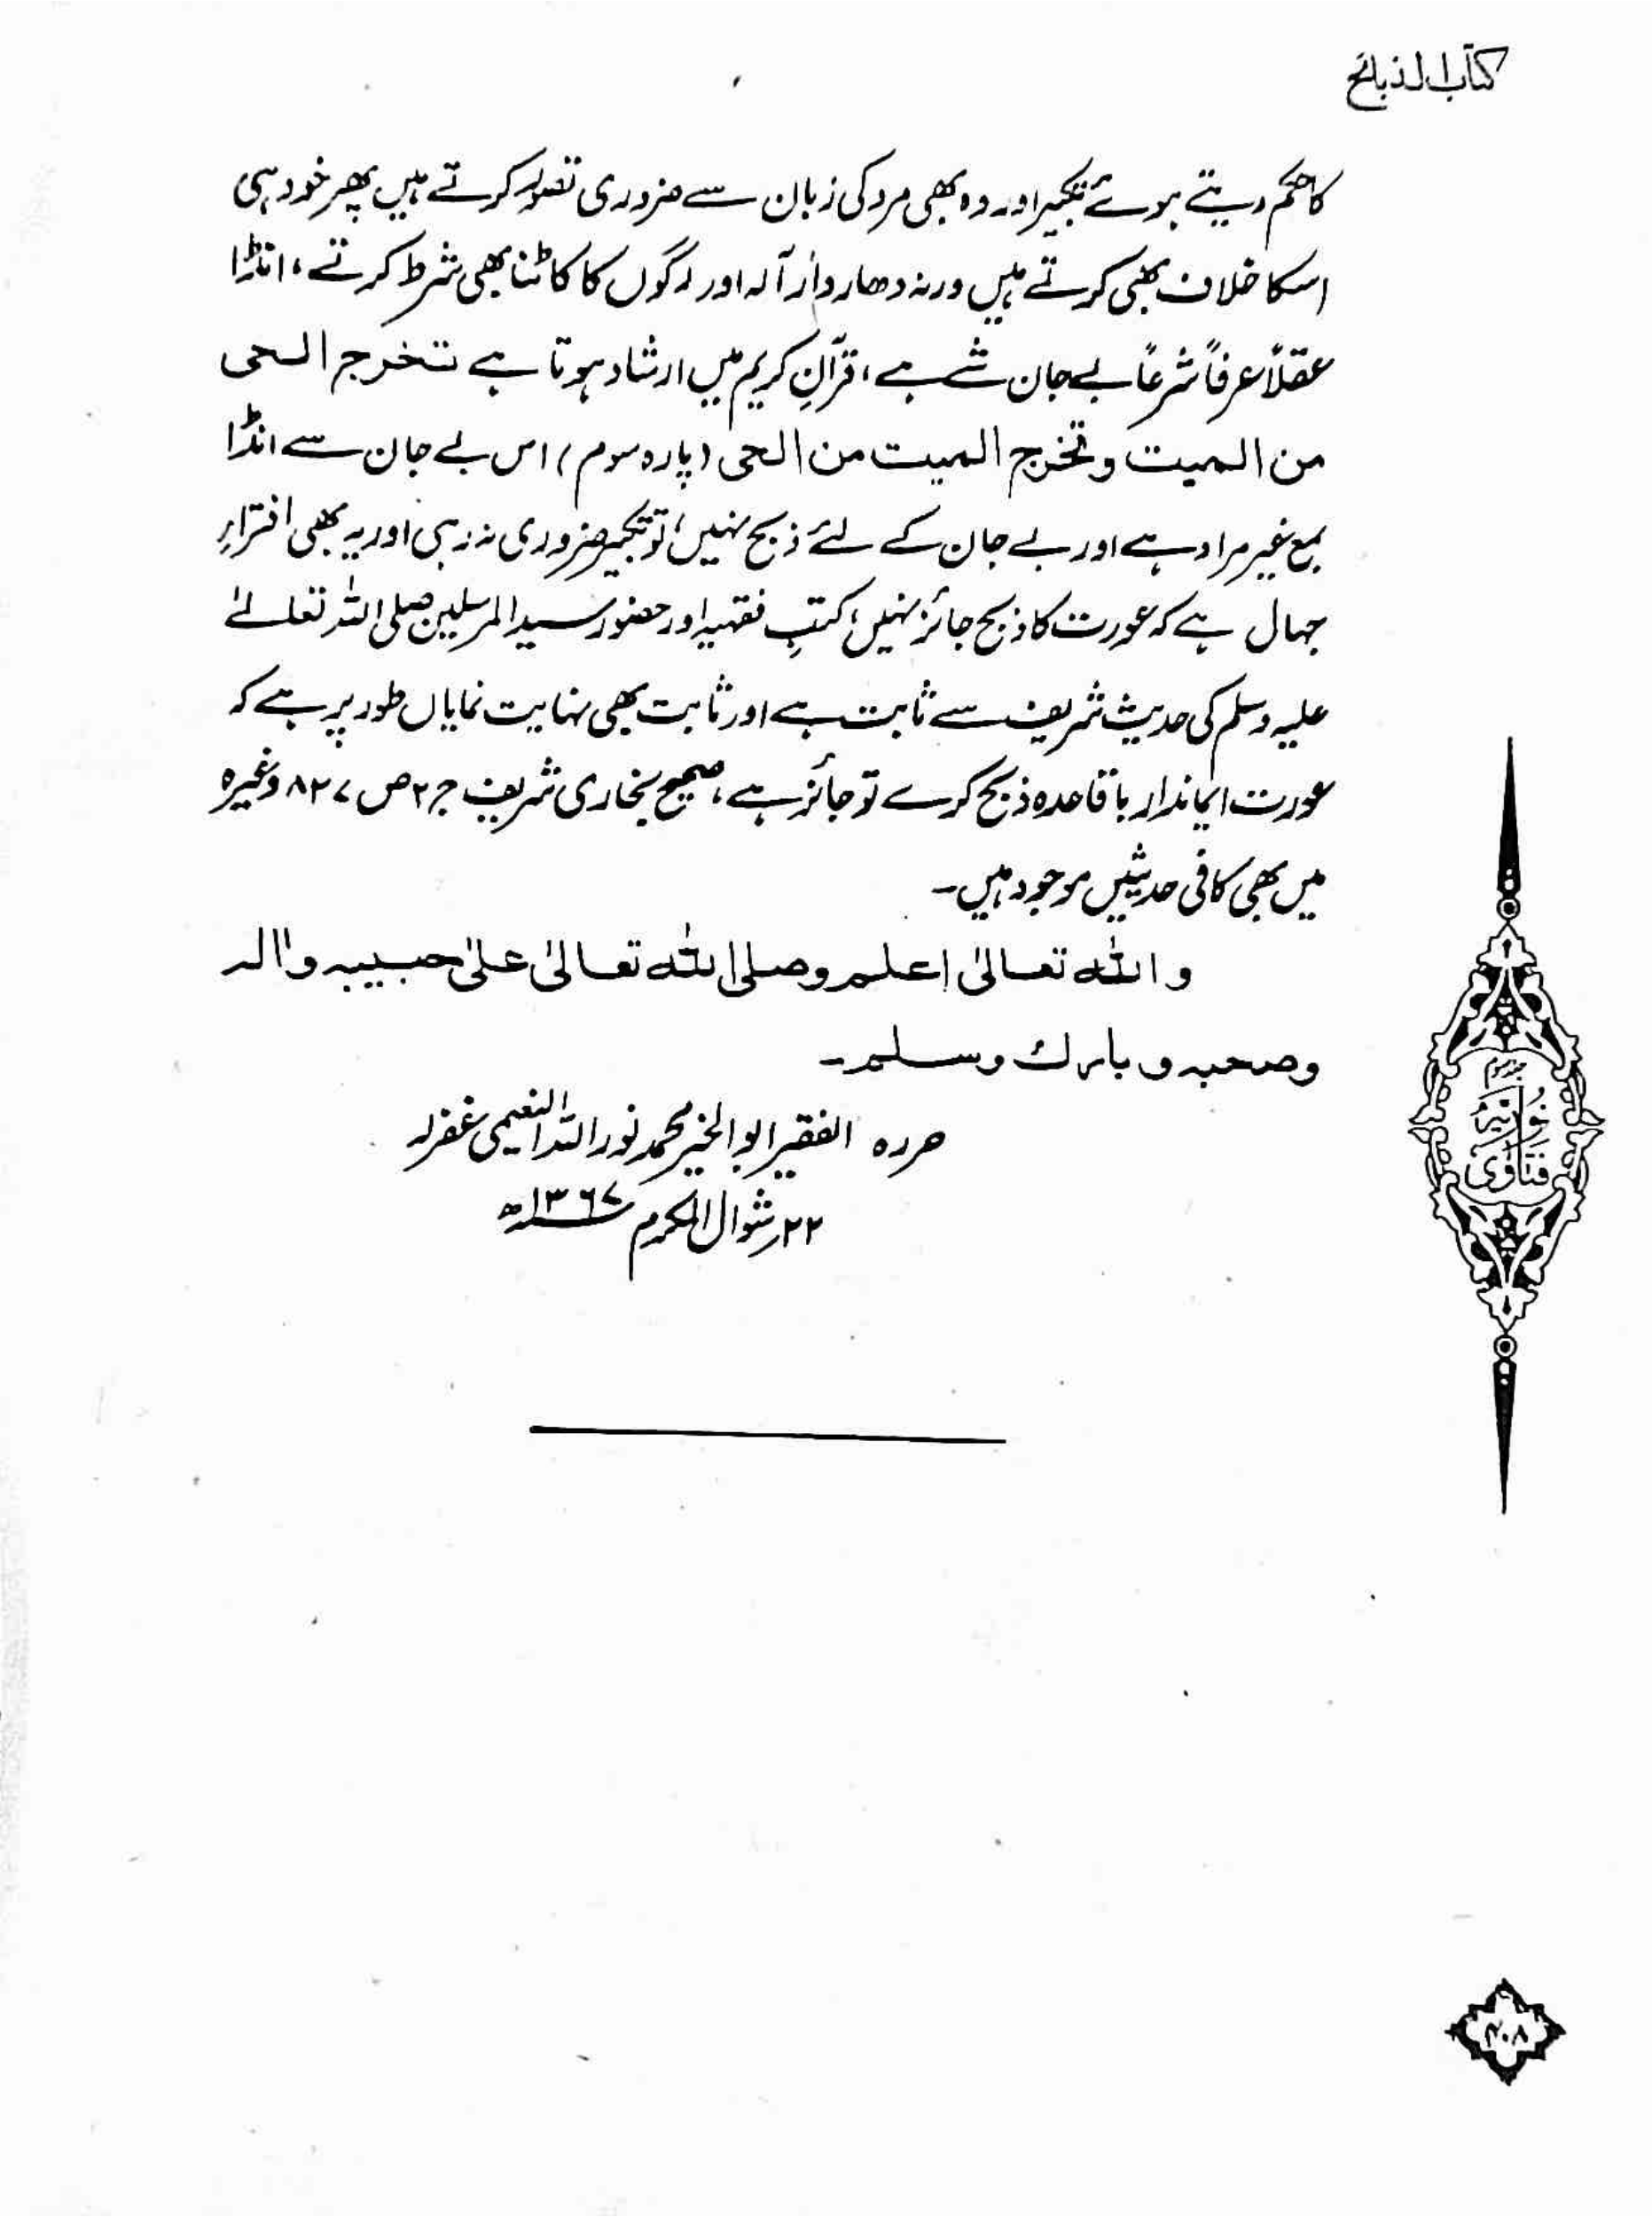 کتاب الذبائح
کا حکم دیتے ہوئے تکبیر اور وہ بھی مرد کی زبان سے ضروری تصور کرتے ہیں پھر خود ہی
اسکا خلاف بھی کرتے ہیں ورنہ دھار دار آلہ اور رگوں کا کاٹنا بھی شرط کرتے، انڈا
عقلاً عرفاً شرعاً بے جان شے ہے، قرآنِ کریم میں ارشاد ہوتا ہے تخرج الحی
من المیت وتخرج المیت من الحی (پارہ سوم) اس بے جان سے انڈا
بمع غیر مراد ہے اور بے جان کے لئے ذبح نہیں، تو تکبیر ضروری نہ رہی اور یہ بھی افترارِ
جہال ہے کہ عورت کا ذبح جائز نہیں، کتبِ فقہیہ اور حضور سید المرسلین صلی اللہ تعالےٰ
علیہ وسلم کی حدیث شریف سے ثابت ہے اور ثابت بھی نہایت نمایاں طور پر ہے کہ
عورت ایماندار باقاعدہ ذبح کرے تو جائز ہے، صحیح بخاری شریف ج ۲ ص ۸۲۷ وغیرہ
میں بھی کافی حدیثیں موجود ہیں۔
واللہ تعالیٰ اعلم وصلی اللہ تعالیٰ علیٰ حبیبہ واٰلہ
وصحبہ و بارك وسلم۔
حررہ الفقیر ابو الخیر محمد نور اللہ النعیمی غفرلہ
۲۲ر شوال المکرم ۱۳۶۷ھ
جلد سوم
فتاوٰی نوریہ
۴۰۸